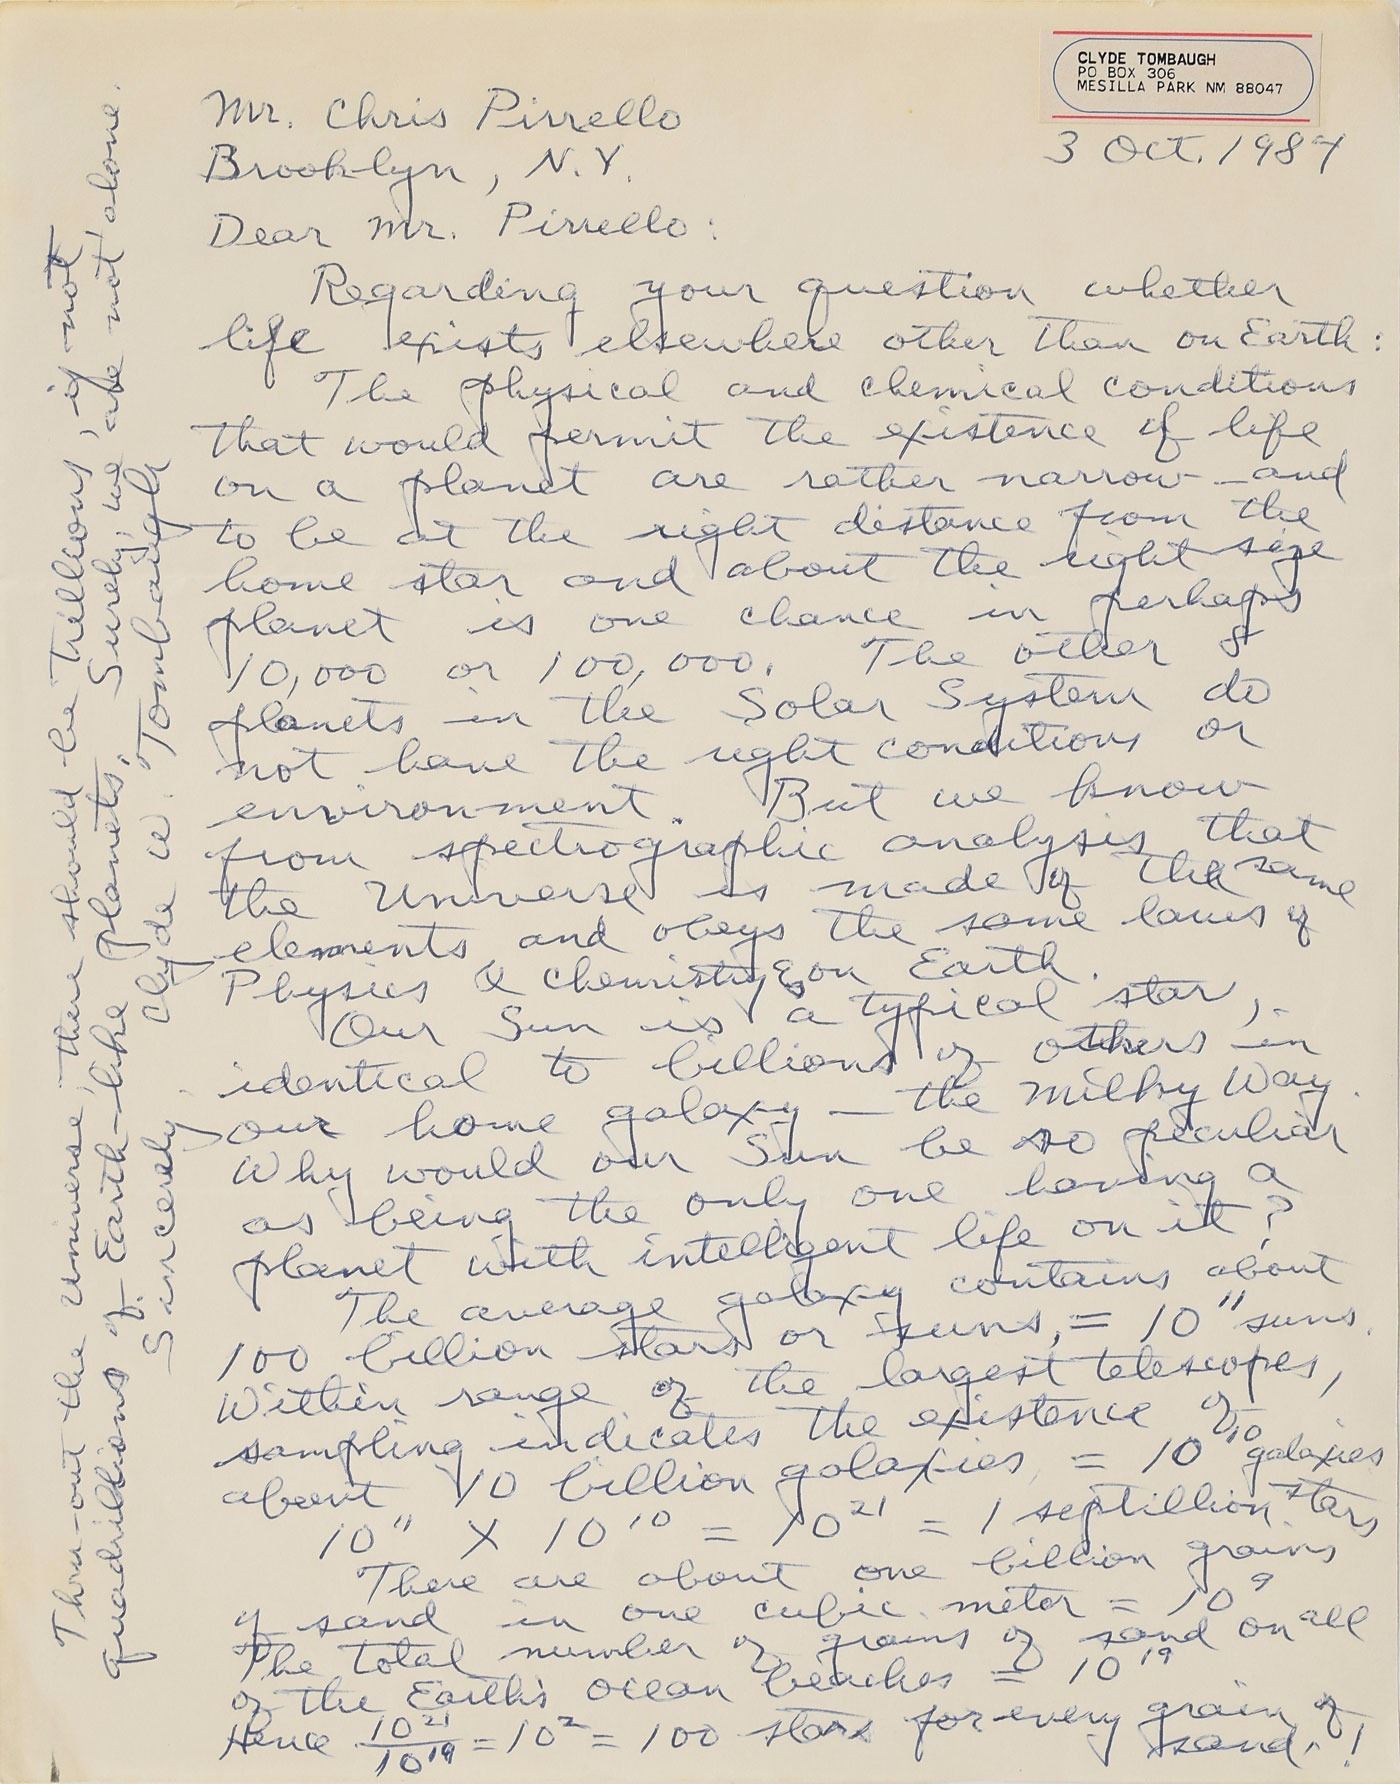 CLYDE TOMBAUGH
PO BOX 306
MESILLA PARK NM 88047
3 Oct. 1987
Mr. Chris Pirrello
Brooklyn, N.Y.
Dear Mr. Pirrello:
Regarding your question whether
life exists elsewhere other than on Earth:
The physical and chemical conditions
that would permit the existence of life
on a planet are rather narrow—and
to be at the right distance from the
home star and about the right size
planet is one chance in perhaps
10,000 or 100,000. The other 8
planets in the Solar System do
not have the right conditions or
environment. But we know
from spectrographic analysis that
the Universe is made of the same
elements, and obeys the same laws of
Physics & Chemistry, on Earth.
Our Sun is a typical star,
identical to billions of others in
our home galaxy — the Milky Way.
Why would our Sun be so peculiar
as being the only one having a
planet with intelligent life on it?
The average galaxy contains about
100 billion stars or suns, = 10¹¹ suns.
Within range of the largest telescopes,
sampling indicates the existence of
about 10 billion galaxies, = 10¹⁰ galaxies
10¹¹ X 10¹⁰ = 10²¹ = 1 septillion stars
There are about one billion grains
of sand in one cubic meter = 10⁹
The total number of grains of sand on all
of the Earth's ocean beaches = 10¹⁹
Hence 10²¹/10¹⁹ = 10² = 100 stars for every grain of
sand.!
Thru-out the Universe, there should be trillions, if not
quadrillions of Earth-like planets. Surely, we are not alone.
Sincerely, Clyde W. Tombaugh